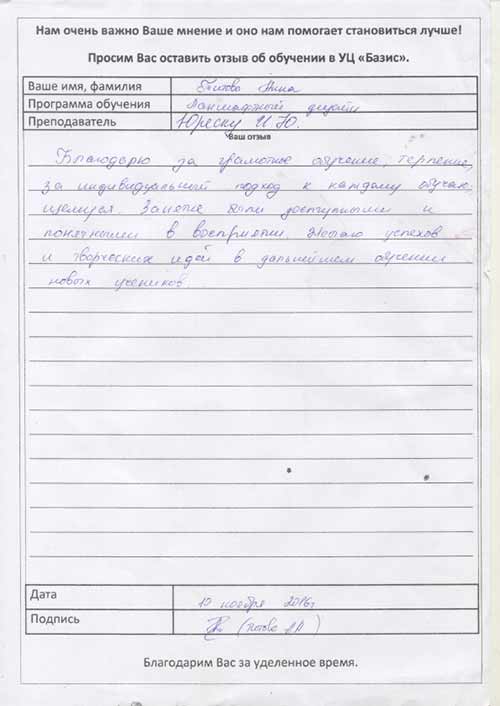 Нам очень важно Ваше мнение и оно нам помогает становиться лучше!
Просим Вас оставить отзыв об обучении в УЦ «Базис».
Ваше имя, фамилия
Программа обучения Ландшафтный дизайн
Преподаватель Юреску И.Ю.
Ваш отзыв
Благодарю за грамотное обучение, терпение,
за индивидуальный подход к каждому обучаю-
щемуся. Занятия были доступными и
понятными в восприятии. Желаю успехов
и творческих идей в дальнейшем обучении
новых учеников.
Дата 10 ноября 2016г
Подпись
Благодарим Вас за уделенное время.